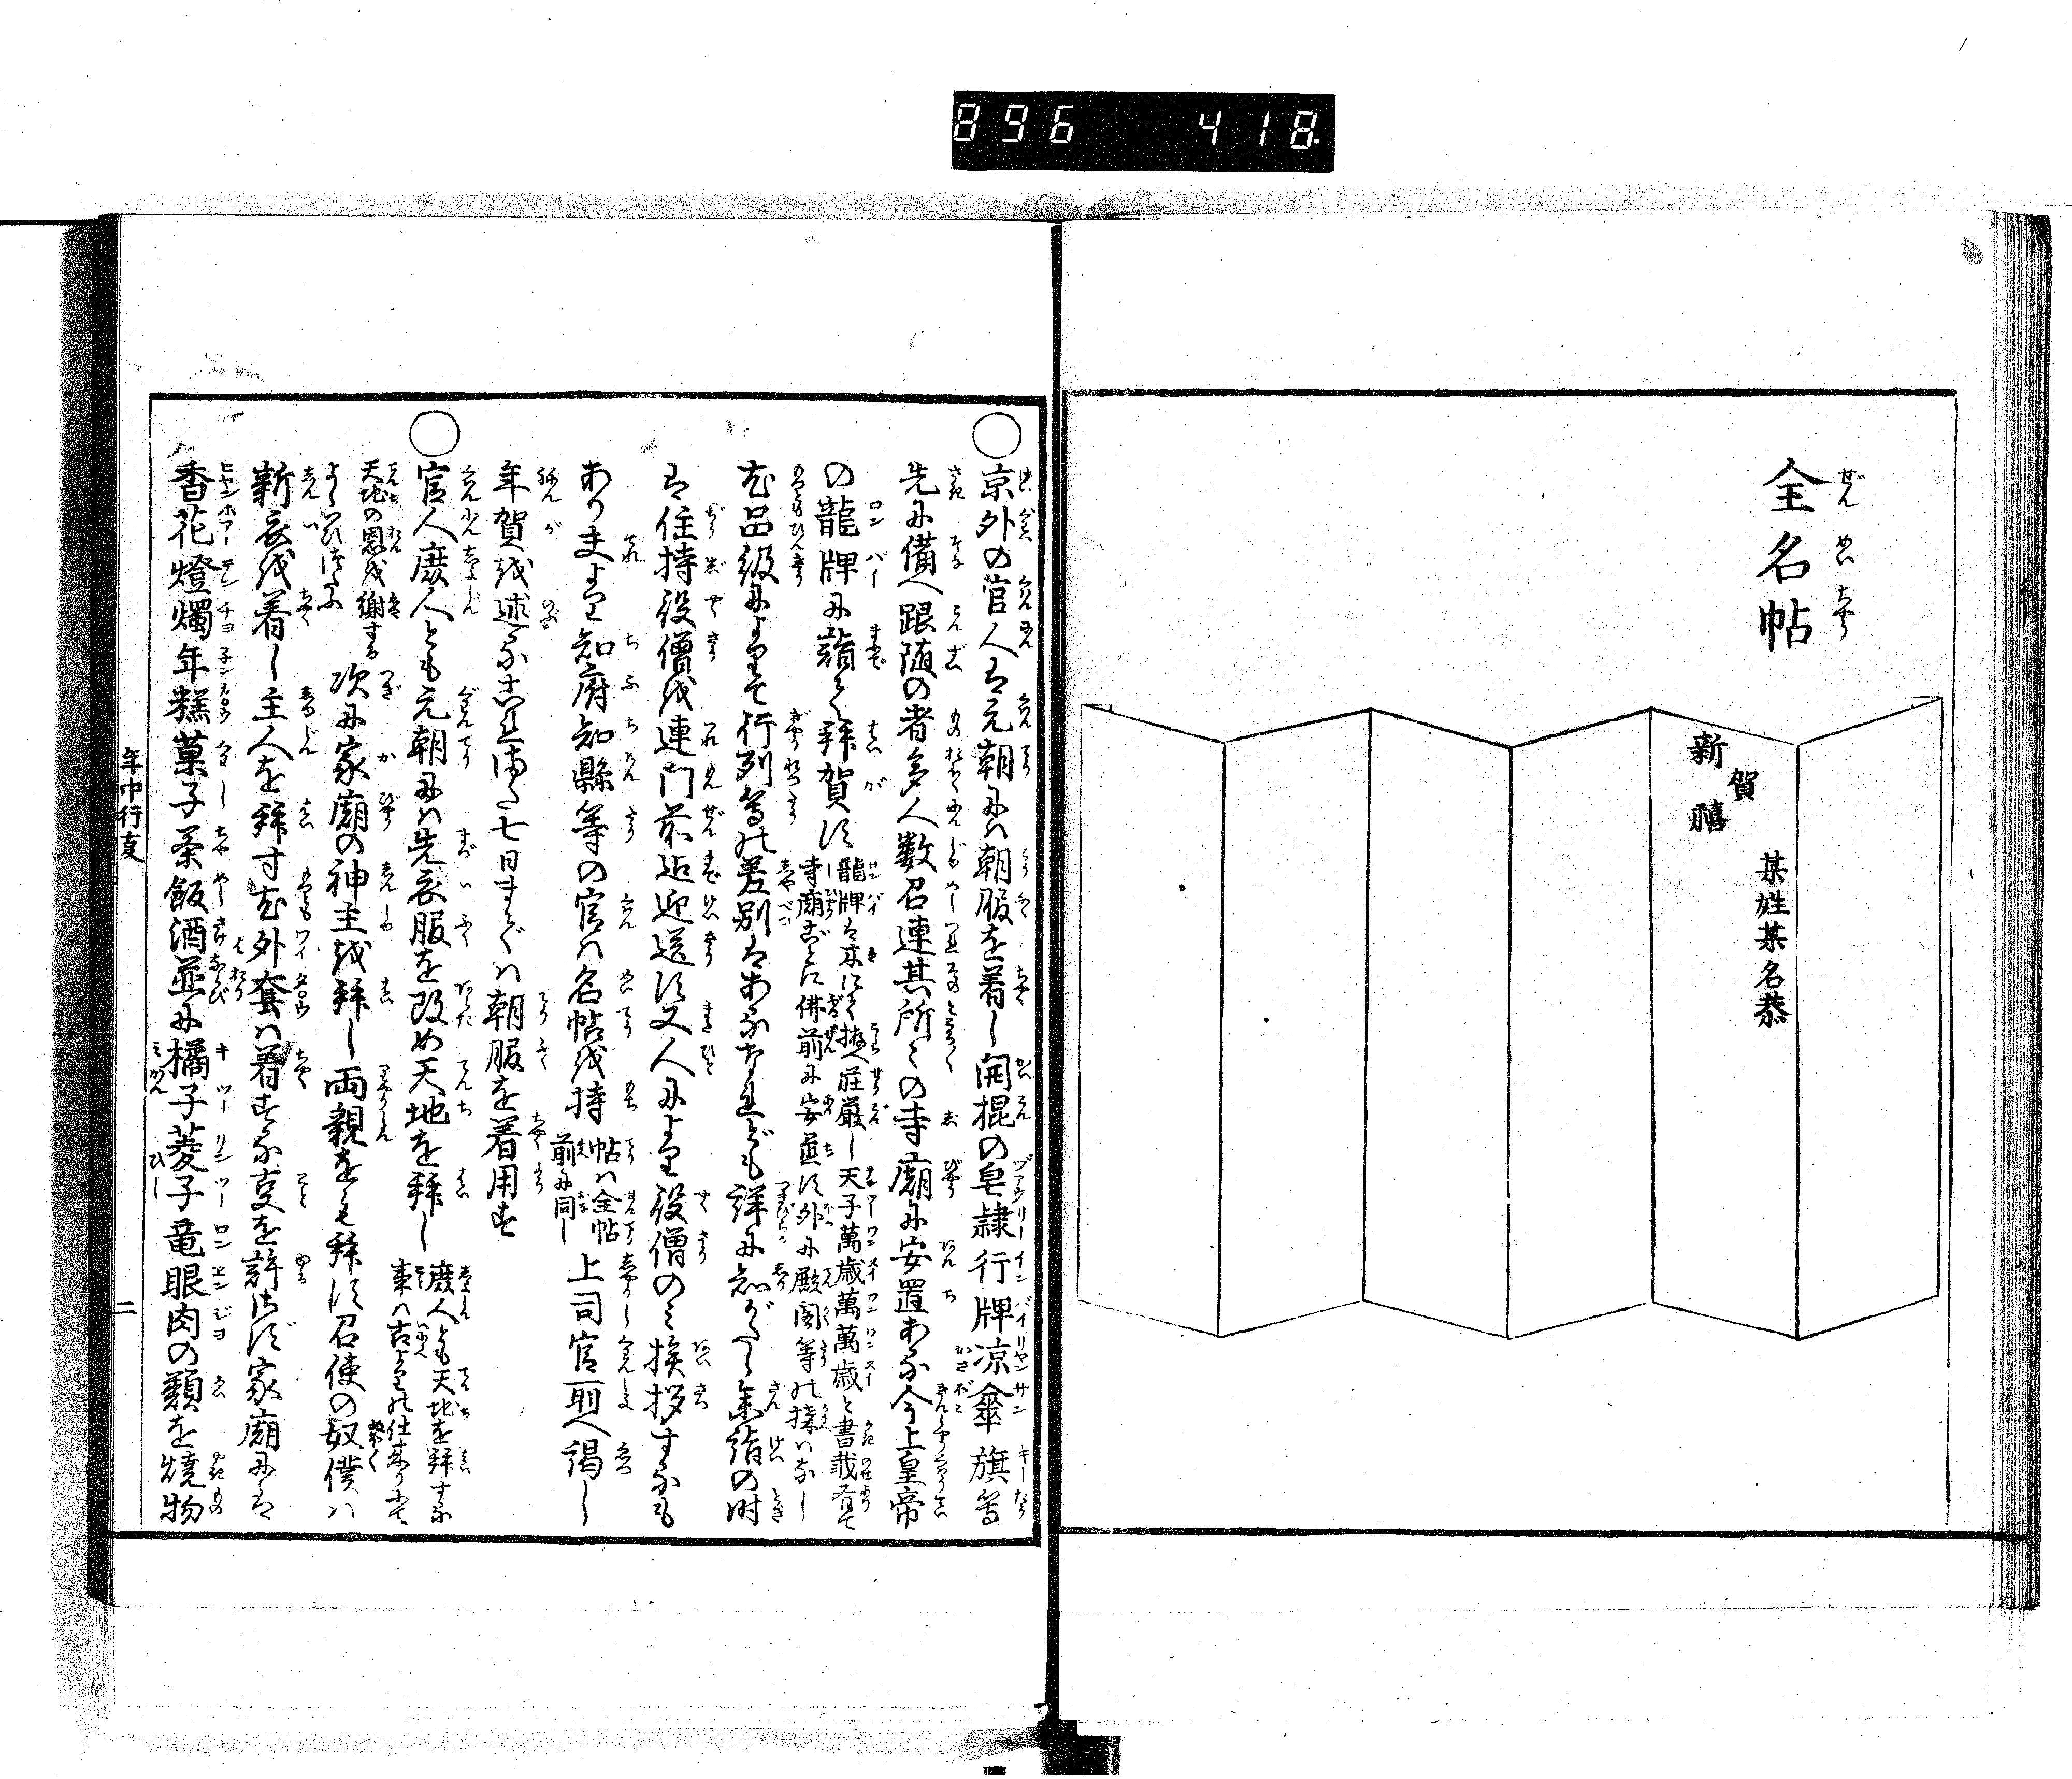 896 418
全名帖
賀
新禧
某姓某名恭
京外の官人ハ元朝にハ朝服を着し開棍の皂隷行牌凉傘旗等
先に備へ跟随の者多人数召連其所々の寺廟に安置ある今上皇帝
の龍牌に詣て拝賀す
龍牌ハ木にて拵へ荘厳し天子萬歳萬萬歳と書載有て
寺廟ごとに佛前に安置す外に殿閣等の構ハなし
尤品級によりて行列等の差別ハあるなれども詳に知がたし参詣の時
ハ住持役僧を連門前迄迎送す又人により役僧のミ挨拶するも
あり夫より知府知縣等の官ハ名帖を持
帖ハ全帖
前に同し
上司官前へ謁し
年賀を述るこれ満た七日まてハ朝服を着用す
官人庶人とも元朝にハ先衣服を改め天地を拝し
庶人とも天地を拝する
事ハ古よりの仕来りにて
天地の恩を謝する
よしいひ伝ふ
次に家廟の神主を拝し両親をも拝す召使の奴僕ハ
新衣を着し主人を拝す尤外套ハ着する事を許さず家廟にハ
香花燈燭年糕菓子茶飯酒並に橘子菱子竜眼肉の類を焼物
年中行事
二